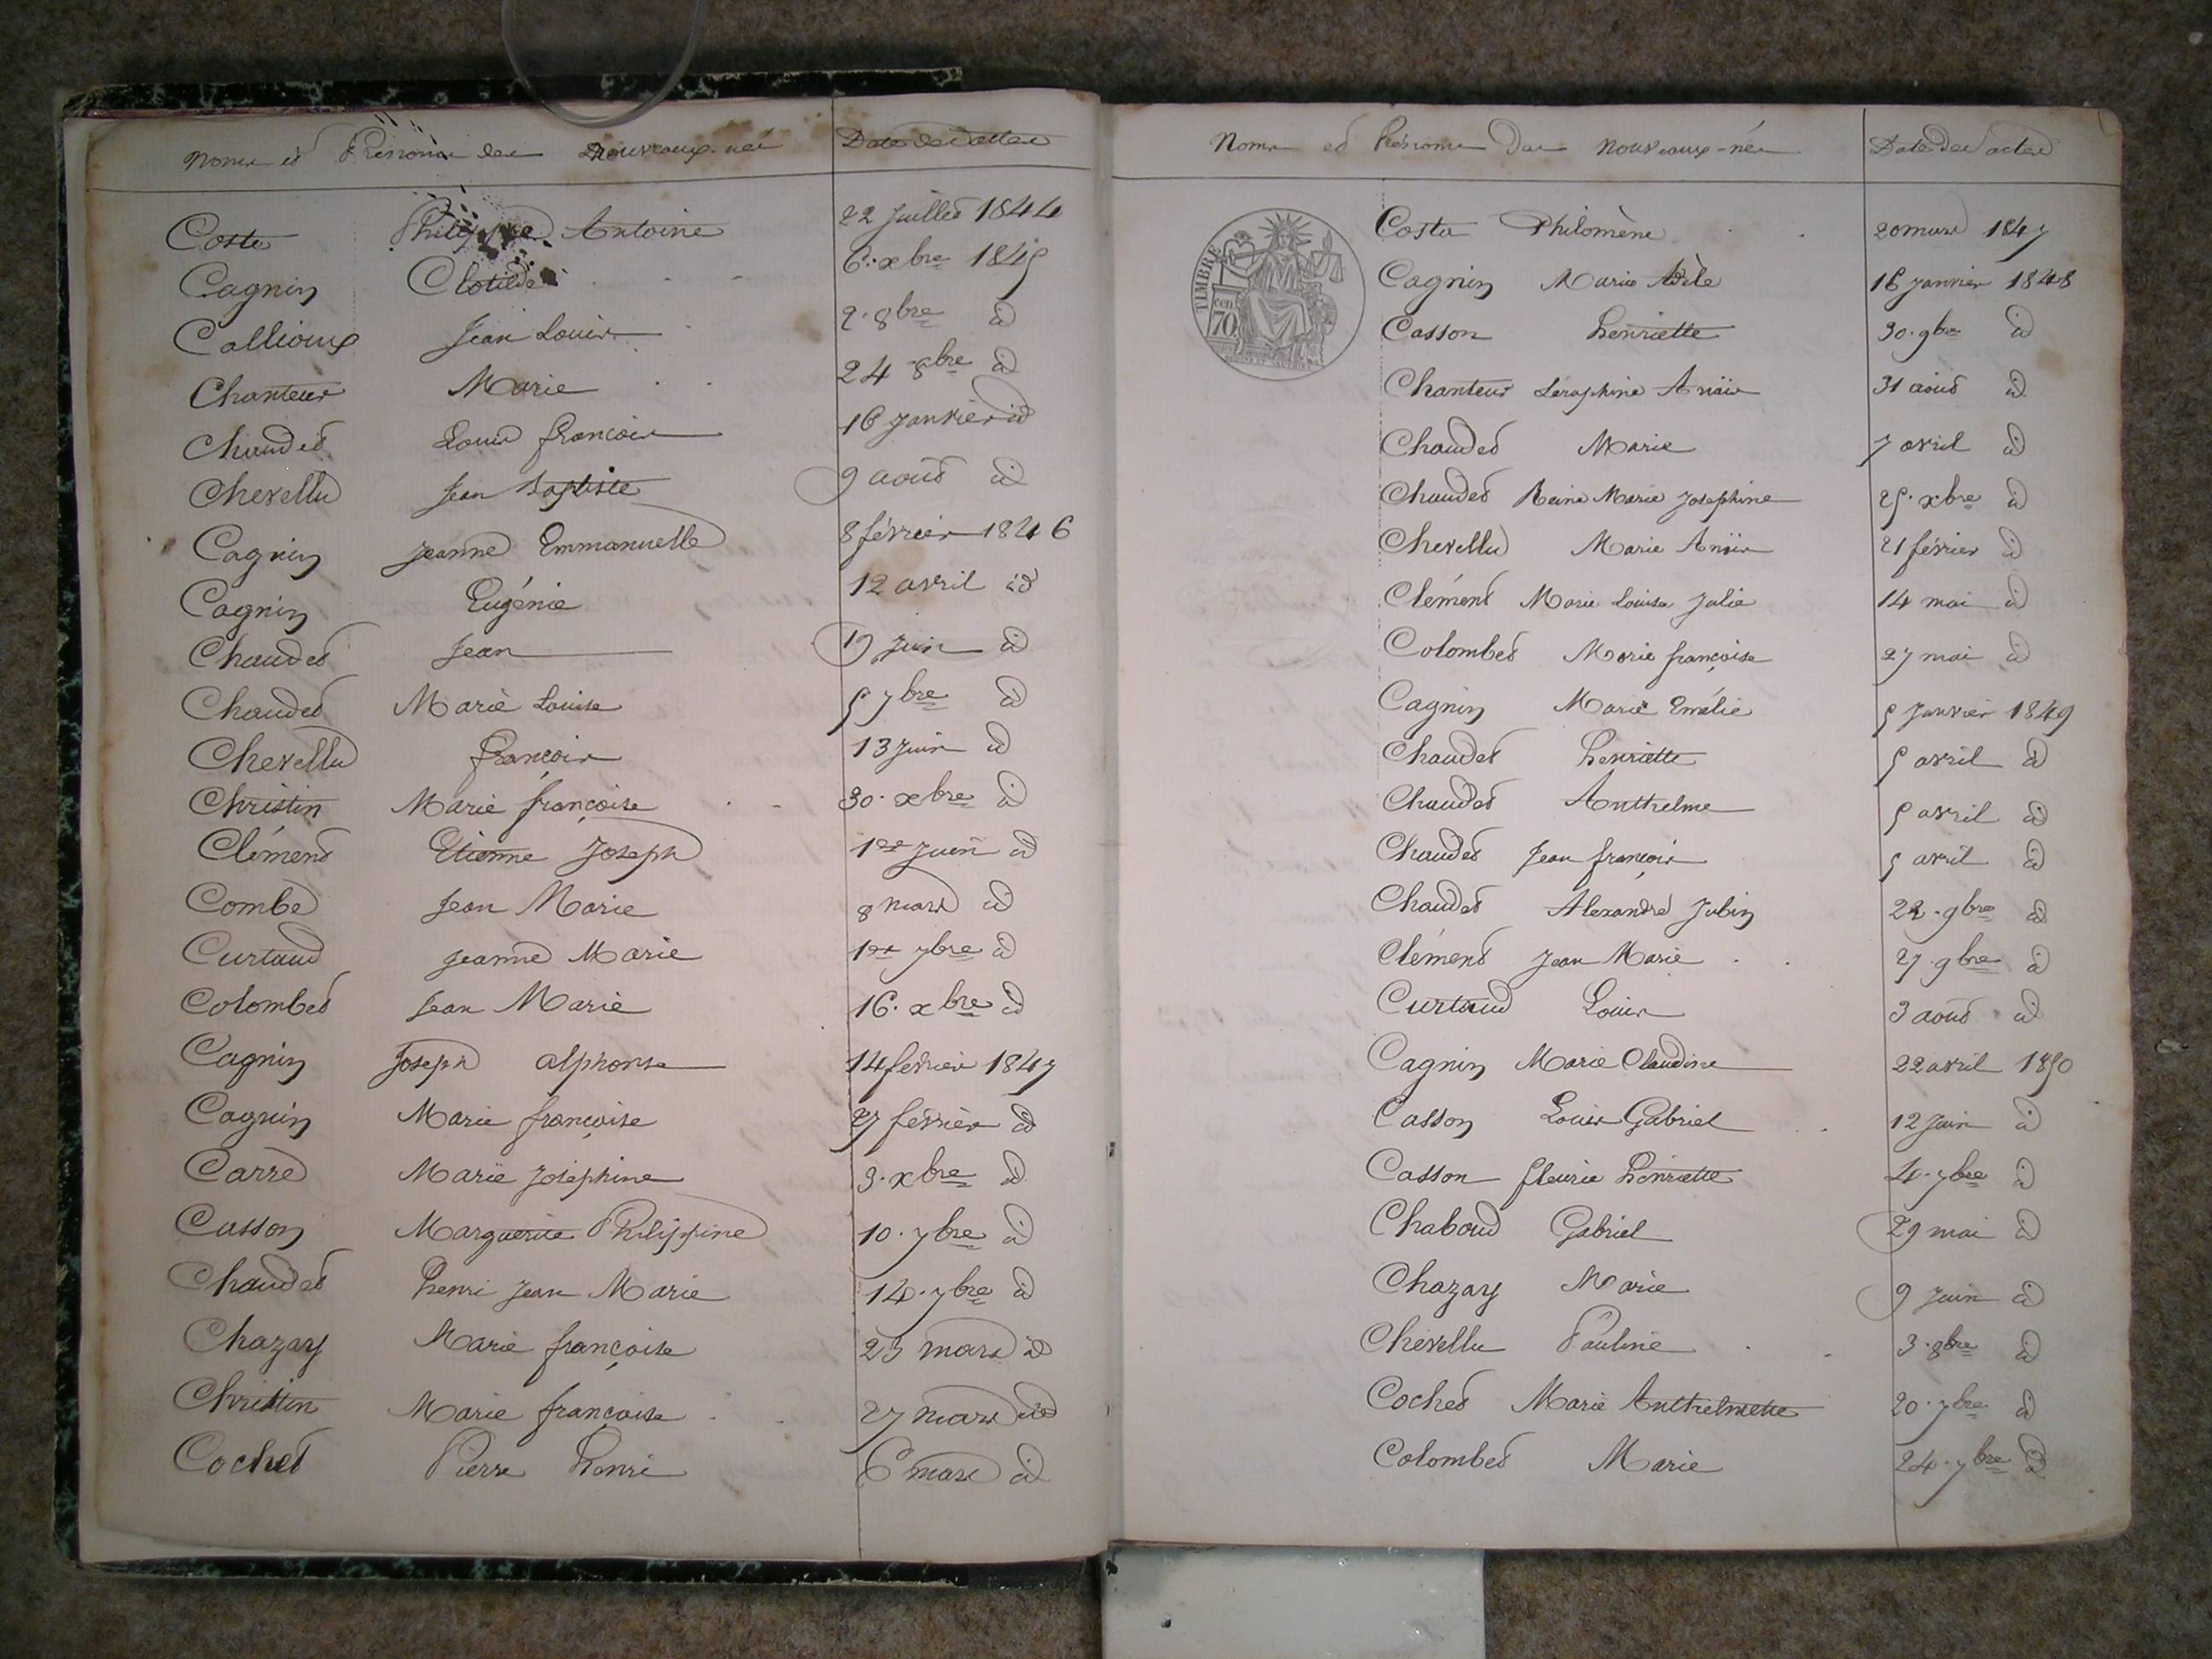 Noms et Prénoms des Nouveaux-nés Date des actes
Costa Philippe Antoine 22 Juillet 1844
Cagnin Clotilde 6. xbre 1845
Callioux Jean Louis 2. 8bre id
Chanteur Marie 24 8bre id
Chaudet Louis françois 16 Janvier id
Chevellu Jean Baptiste 9 août id
Cagnin Jeanne Emmanuelle 8 février 1846
Cagnin Eugénie 12 avril id
Chaudet Jean 19 Juin id
Chaudet Marie Louise 5 7bre id
Chevellu françois 13 Juin id
Christin Marie françoise 30. xbre id
Clément Etienne Joseph 1er Juin id
Combe Jean Marie 8 mars id
Curtaud Jeanne Marie 1er 7bre id
Colombet Jean Marie 16. xbre id
Cagnin Joseph alphonse 14 février 1847
Cagnin Marie françoise 27 février id
Carre Marie Joséphine 3. xbre id
Casson Marguerite Philippine 10. 7bre id
Chaudet henri Jean Marie 14. 7bre id
Chazay Marie françoise 25 mars id
Christin Marie françoise 27 mars id
Cochet Pierre henri 6 mars id
Noms et Prénoms des Nouveaux-nés Date des actes
TIMBRE
cen
70
Costa Philomène 20 mars 1847
Cagnin Marie Adèle 16 Janvier 1848
Casson henriette 30. 9bre id
Chanteur Séraphine Anaïs 31 août id
Chaudet Marie 7 avril id
Chaudet Reine Marie Josephine 25. xbre id
Chevellu Marie Anaïs 21 février id
Clément Marie Louise Julie 14 mai id
Colombet Marie françoise 27 mai id
Cagnin Marie Emélie 5 Janvier 1849
Chaudet henriette 5 avril id
Chaudet Anthelme 5 avril id
Chaudet Jean françois 5 avril id
Chaudet Alexandre Jubin 22. 9bre id
Clément Jean Marie 27. 9bre id
Curtaud Louis 3 août id
Cagnin Marie Claudine 22 avril 1850
Casson Louis Gabriel 12 Juin id
Casson fleurie henriette 4. 7bre id
Chaboud Gabriel 29 mai id
Chazay Marie 9 Juin id
Chevellu Pauline 3. 8bre id
Cochet Marie Anthelmette 20. 7bre id
Colombet Marie 24. 7bre id